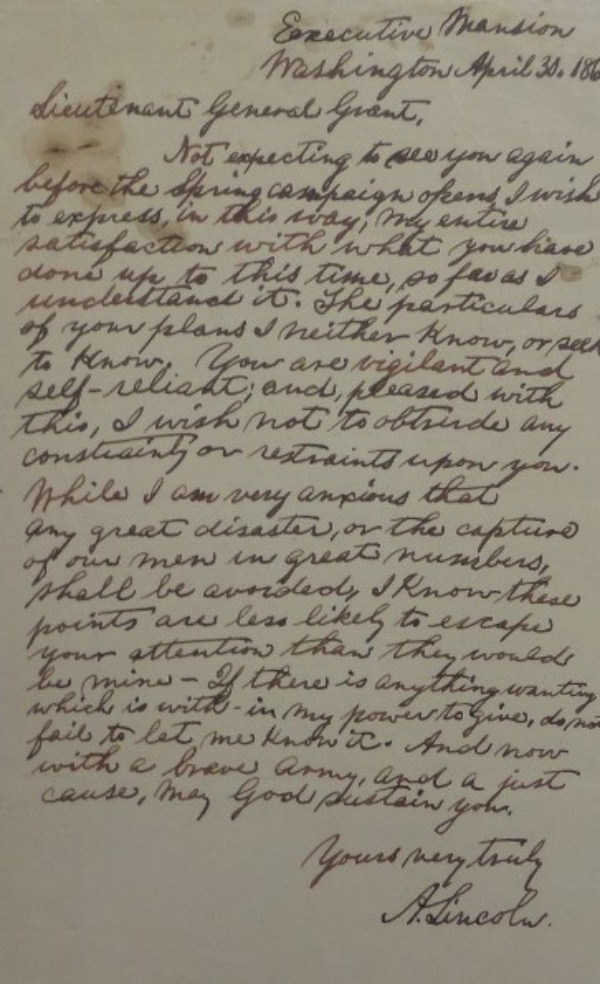 Executive Mansion
Washington, April 30. 186
Lieutenant General Grant,
Not expecting to see you again
before the Spring campaign opens, I wish
to express, in this way, my entire
satisfaction with what you have
done up to this time, so far as I
understand it. The particulars
of your plans I neither know, or seek
to know. You are vigilant and
self-reliant; and, pleased with
this, I wish not to obtrude any
constraints or restraints upon you.
While I am very anxious that
any great disaster, or the capture
of our men in great numbers,
shall be avoided, I know these
points are less likely to escape
your attention than they would
be mine - If there is anything wanting
which is with-in my power to give, do not
fail to let me know it. And now
with a brave Army, and a just
cause, may God sustain you.
Yours very truly
A. Lincoln.